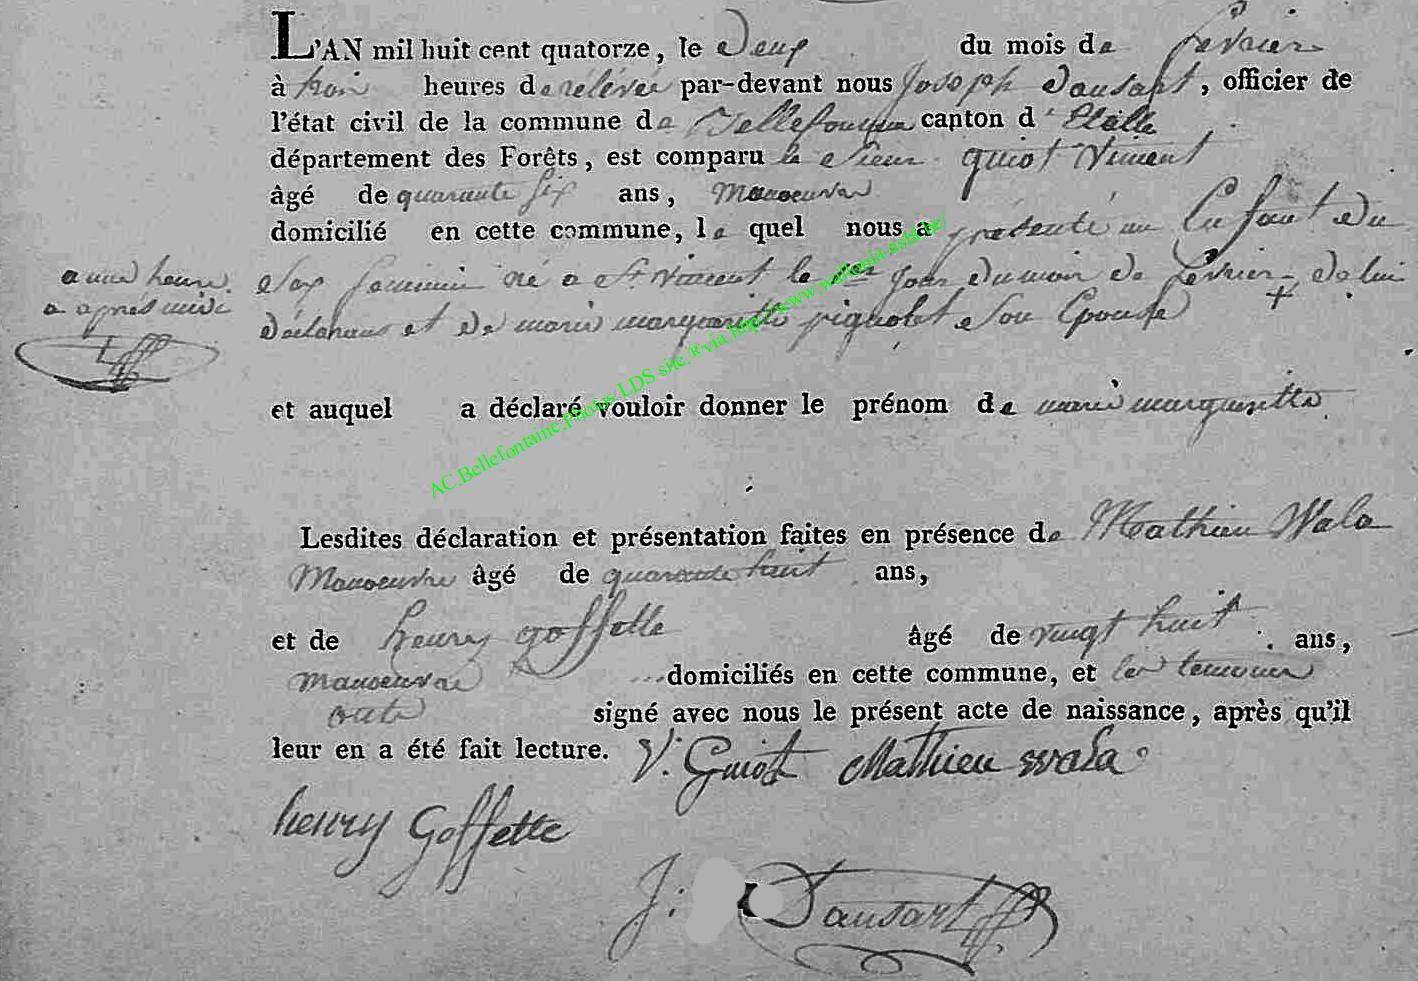 L'AN mil huit cent quatorze, le Deux du mois de février
à trois heures de rélévée par-devant nous Joseph Dausart, officier de
l'état civil de la commune de Bellefontaine canton d'Etalle
département des Forêts, est comparu le Sieur guiot Vincent
âgé de quarante six ans, Manoeuvre
domicilié en cette commune, le quel nous a présenté un Enfant Du
a une heure Sex feminin né a St Vincent le 1er Jour du mois de février + de lui
a apres midi Déclarant et De marie margueritte pignolet Son Epouse
et auquel a déclaré vouloir donner le prénom de marie margueritte
AC.Bellefontaine.Photos LDS site.®via http://www.wallonia-asbl.be/
Lesdites déclaration et présentation faites en présence de Mathieu Wala
Manoeuvre âgé de quarante huit ans,
et de henry goffette âgé de vingt huit ans,
manoeuvre domiciliés en cette commune, et les temoins
ont signé avec nous le présent acte de naissance, après qu'il
leur en a été fait lecture. V. Guiot Mathieu wala
henry Goffette
J: Dausart